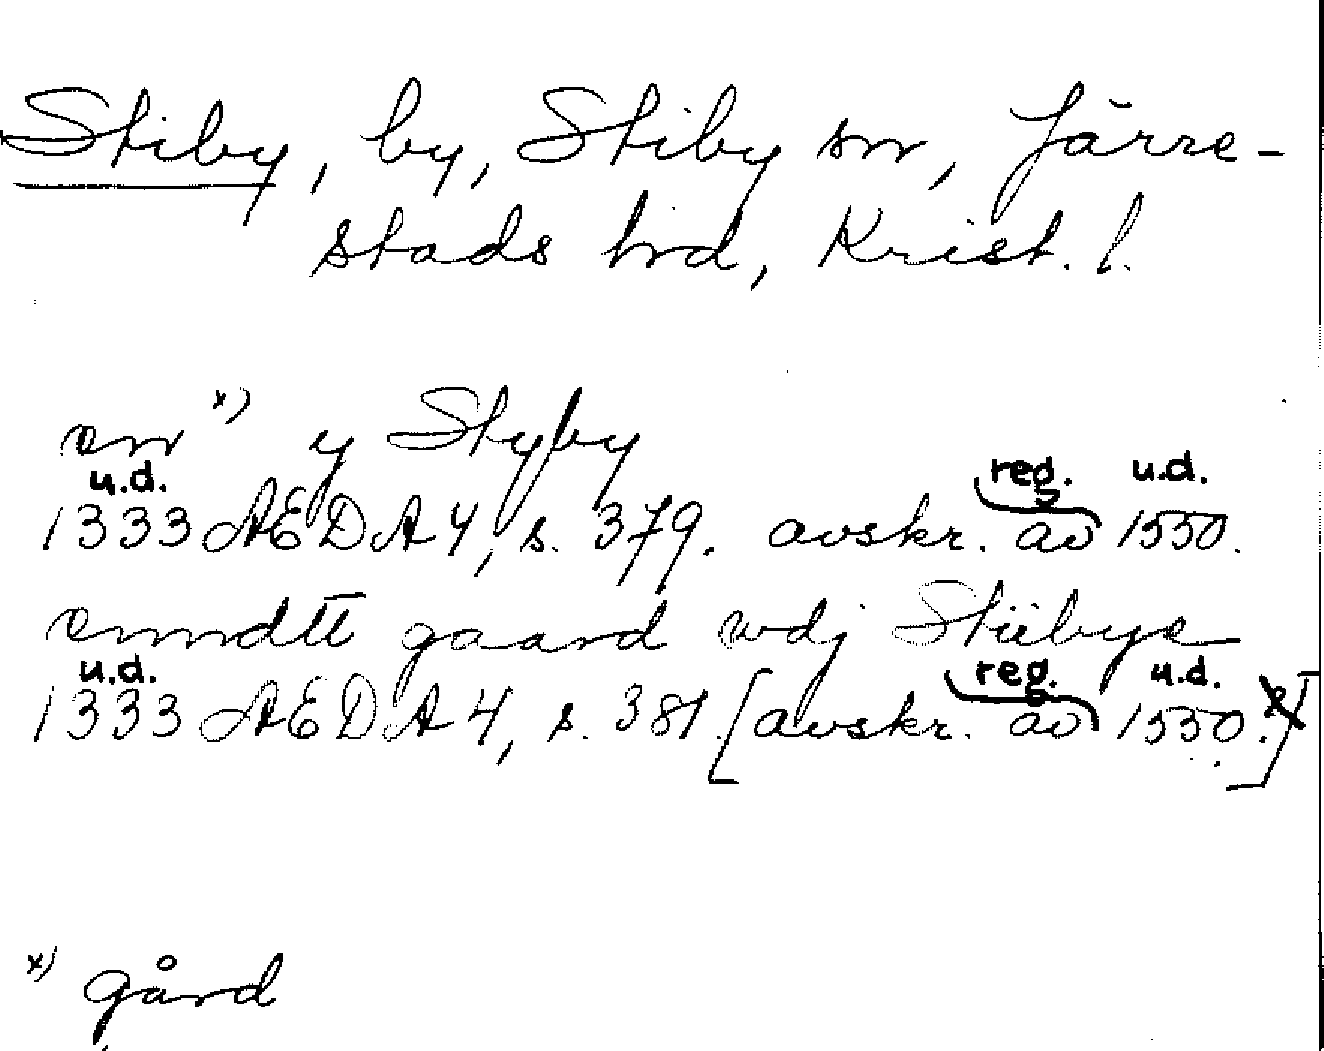 Stiby, by, Stiby sn, Järre-
stads hrd, Krist. l.
en x) y Styby
u.d. reg. u.d.
1333 ÆDA 4, s. 379. avskr. av 1550.
enndtt gaard wdj Stiibye
u.d. reg. u.d.
1333 ÆDA 4, s. 381. [avskr. av 1550.]
x) gård